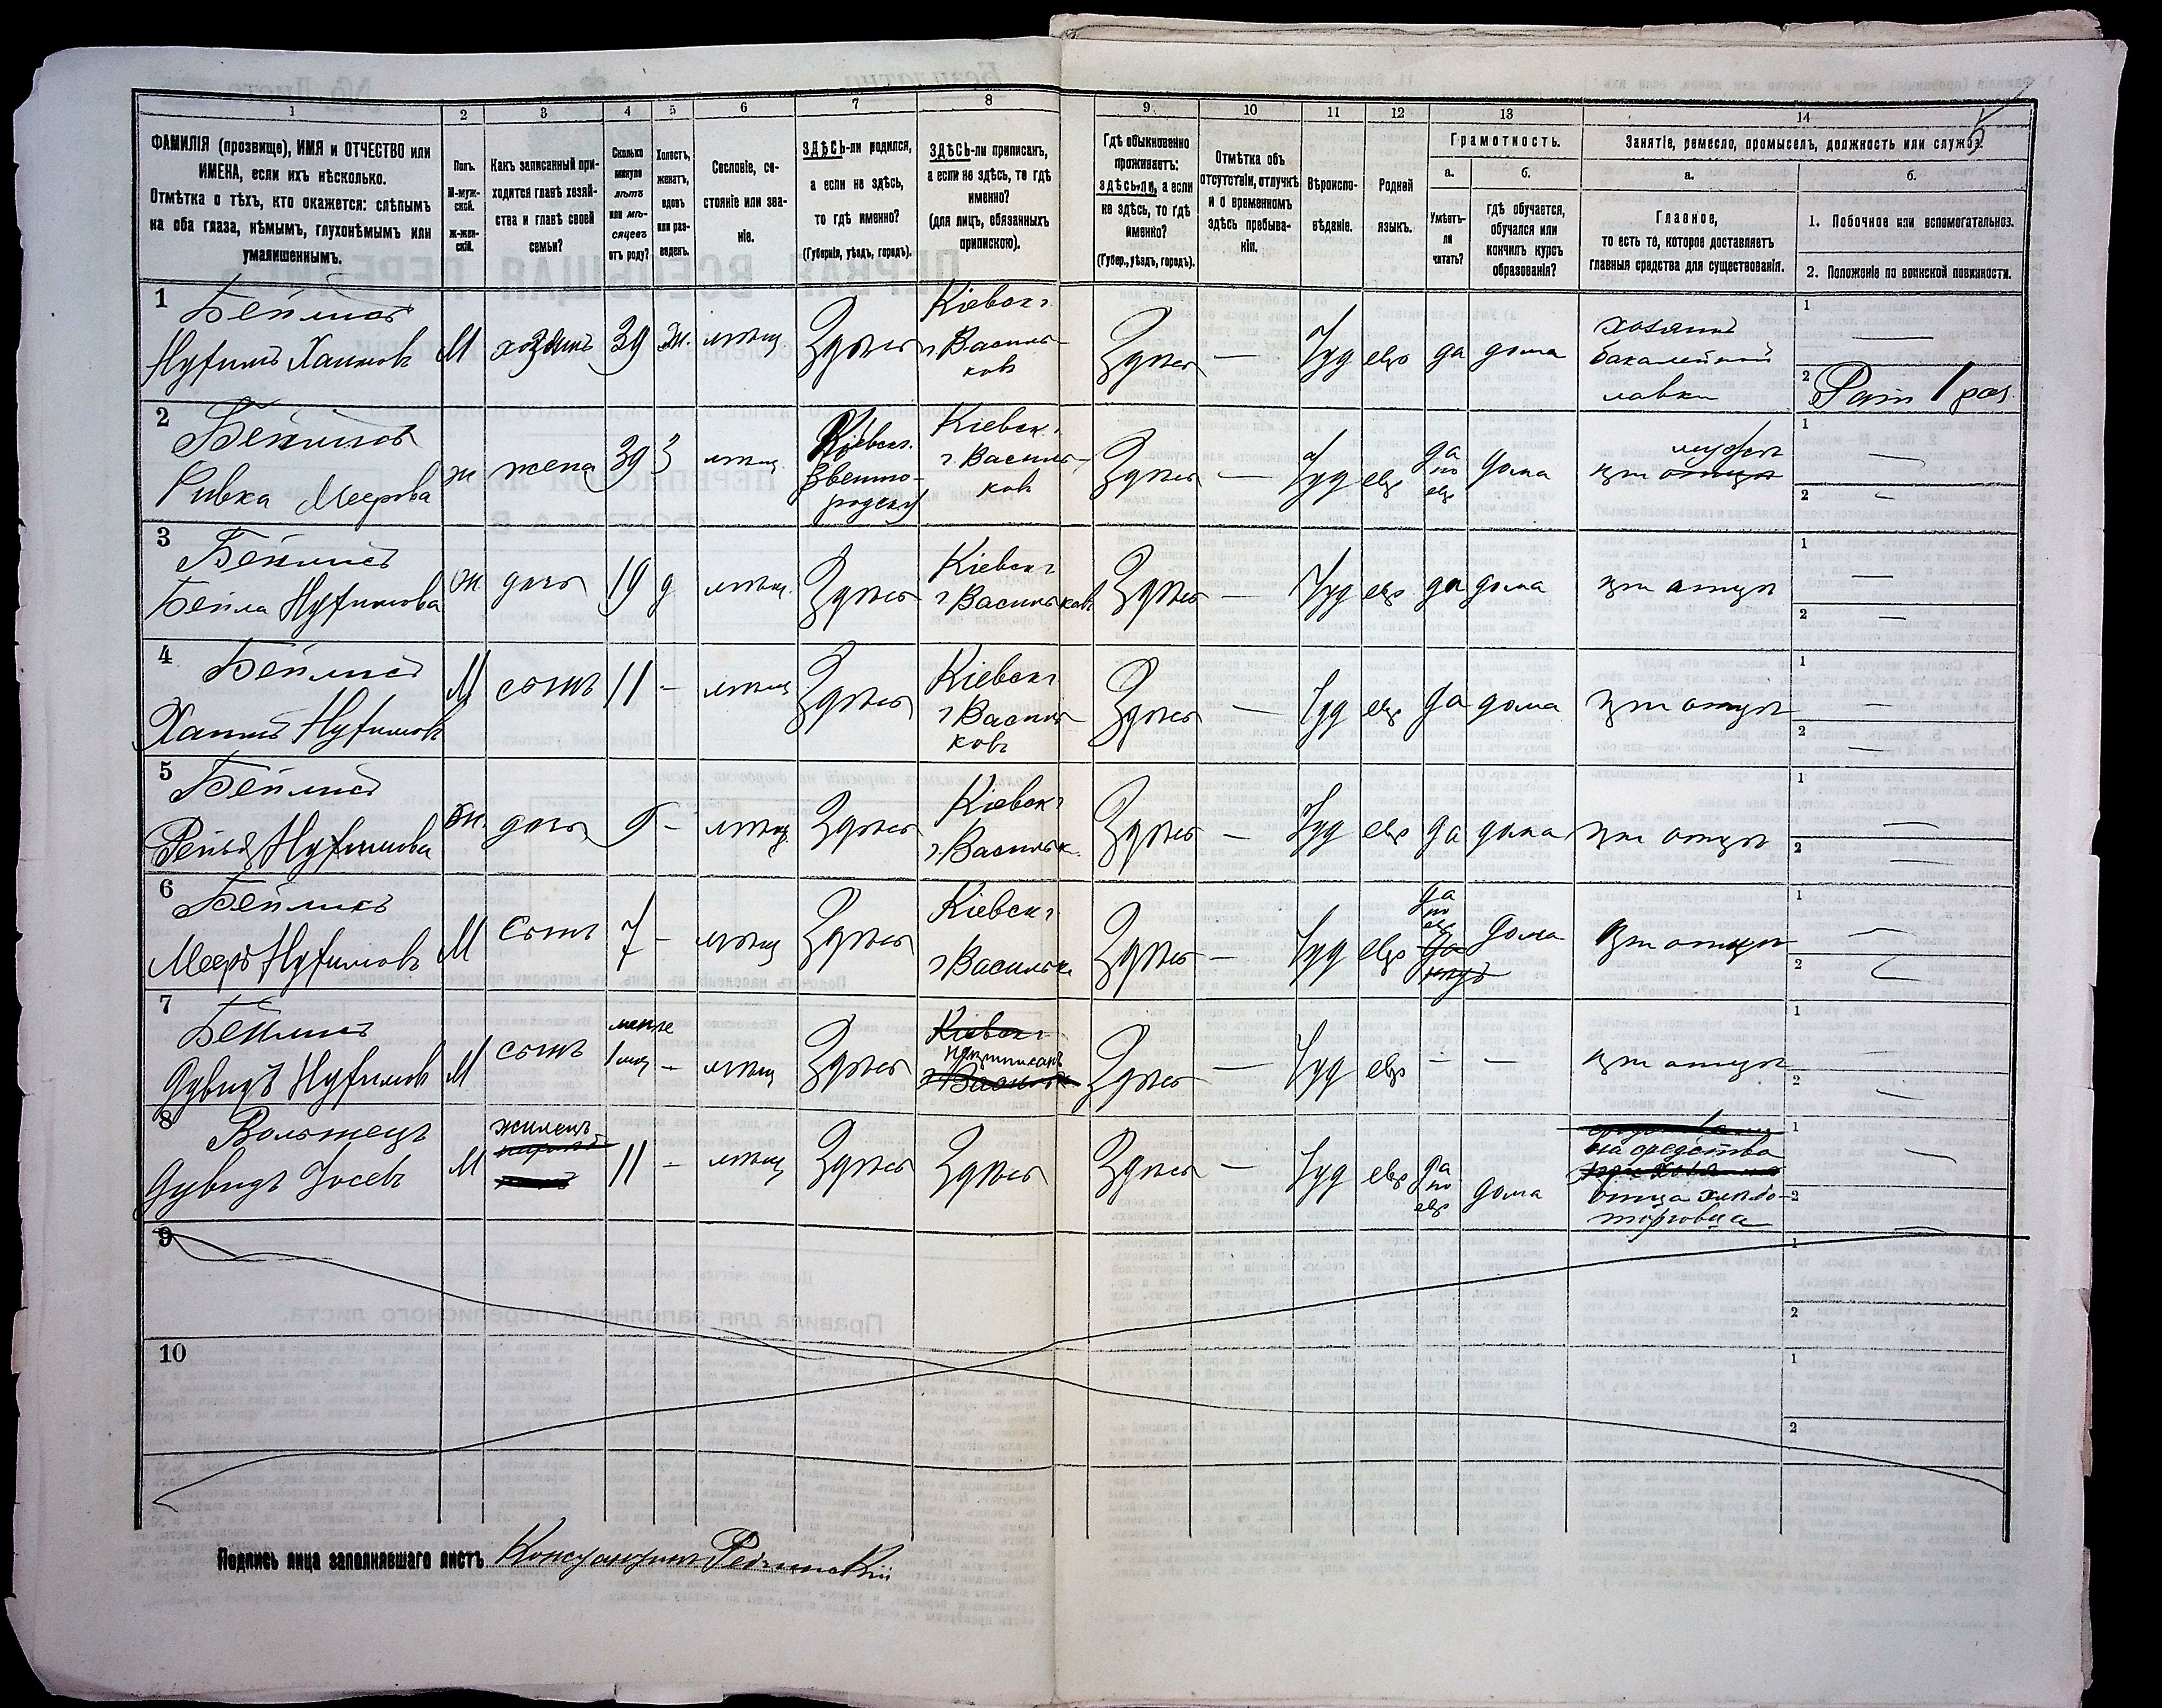 1 2 3 4 5 6 7 8 9 10 11 12 13 14
ФАМИЛІЯ (прозвище), ИМЯ и ОТЧЕСТВО или
ИМЕНА, если ихъ нѣсколько.
Отмѣтка о тѣхъ, кто окажется: слѣпымъ
на оба глаза, нѣмымъ, глухонѣмымъ или
умалишеннымъ.
Полъ.
М-муж-
ской.
ж-жен-
скій.
Какъ записанный при-
ходится главѣ хозяй-
ства и главѣ своей
семьи?
Сколько
минуло
лѣтъ
или мѣ-
сяцевъ
отъ роду?
Холостъ,
женатъ,
вдовъ
или раз-
веденъ.
Сословіе, со-
стояніе или зва-
ніе.
ЗДѢСЬ-ли родился,
а если не здѣсь,
то гдѣ именно?
(Губернія, уѣздъ, городъ).
ЗДѢСЬ-ли приписанъ,
а если не здѣсь, то гдѣ
именно?
(для лицъ, обязанныхъ
припискою).
Гдѣ обыкновенно
проживаетъ:
здѣсь-ли, а если
не здѣсь, то гдѣ
именно?
(Губер., уѣздъ, городъ).
Отмѣтка объ
отсутствіи, отлучкѣ
и о временномъ
здѣсь пребыва-
ніи.
Вѣроиспо-
вѣданіе.
Родной
языкъ.
Грамотность.
а.
Умѣетъ-
ли
читать?
б.
гдѣ обучается,
обучался или
кончилъ курсъ
образованія?
Занятіе, ремесло, промыселъ, должность или служба.
а.
Главное,
то есть то, которое доставляетъ
главныя средства для существованія.
б.
1. Побочное или вспомогательное.
2. Положеніе по воинской повинности.
1 Бейлисъ
Нухимъ Хаимовъ М хозяинъ 39 ж. мѣщ. Здѣсь Кіевск г.
г Василь-
ковъ Здѣсь — Іуд евр да дома хозяинъ
бакалейной
лавки 1 —
2 Ратн 1 раз.
2 Бейлисъ
Ривка Меерова ж жена 39 з мѣщ. Кіевск.
Звенио-
родск у Кіевск г
г Василь-
ковъ Здѣсь — Іуд евр да
по
евр дома при отцѣ
мужѣ 1 —
2 —
3 Бейлисъ
Бейла Нухимова ж. дочь 19 д мѣщ. Здѣсь Кіевск г
г Васильковъ Здѣсь — Іуд евр да дома при отцѣ 1 —
2 —
4 Бейлисъ
Хаимъ Нухимовъ М сынъ 11 - мѣщ Здѣсь Кіевск г
г Василь-
ковъ Здѣсь — Іуд евр да дома при отцѣ 1 —
2 —
5 Бейлисъ
Нухимова ж. дочь 9 - мѣщ. Здѣсь Кіевск г
г. Васильк. Здѣсь — Іуд евр да дома при отцѣ 1 —
2 —
6 Бейлисъ
Мееръ Нухимовъ М сынъ 7 - мѣщ Здѣсь Кіевск г
г Васильк Здѣсь — Іуд евр да
по
евр дома при отцѣ 1 —
2 —
7 Бейлисъ
Дувидъ Нухимовъ М сынъ менѣе
1 мѣс - мѣщ Здѣсь Кіевск г
неприписанъ
г Васильк Здѣсь — Іуд евр - - при отцѣ 1 —
2 —
8 Вольжецъ
Дувидъ Іосевъ М жилецъ 11 - мѣщ Здѣсь Здѣсь Здѣсь — Іуд евр да
по
евр дома на средства
отца хлѣбо-
торговца 1 —
2 —
9 1
2
10 1
2
Подпись лица заполнявшаго листъ Константинъ